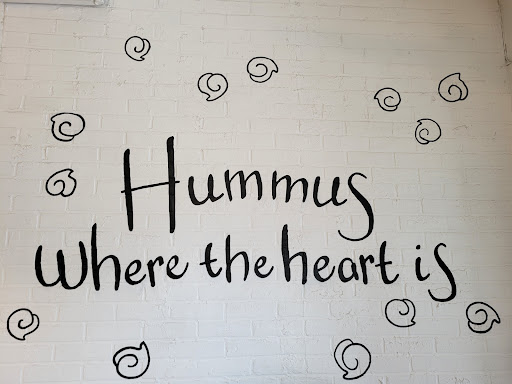 Hummus
where the heart is